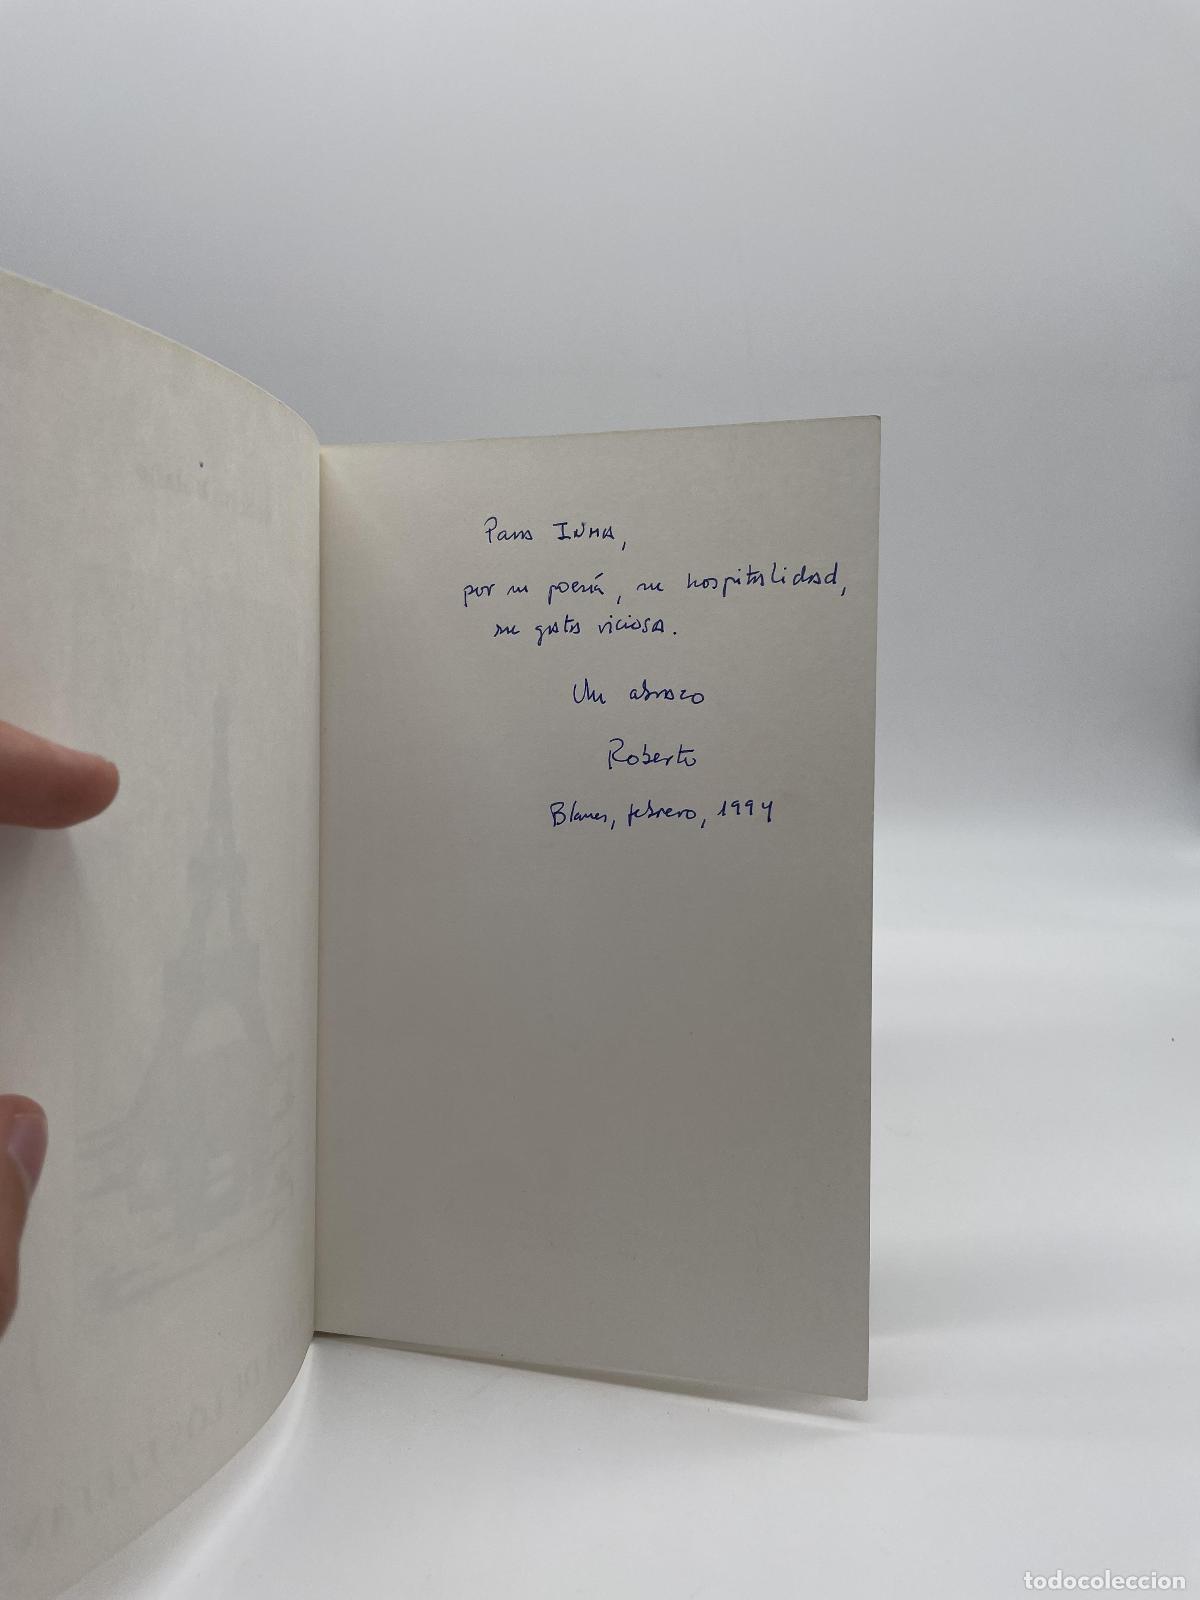 Para INMA,
por su poesía, su hospitalidad,
su gata viciosa.
Un abrazo
Roberto
Blanes, febrero, 1994
todocoleccion